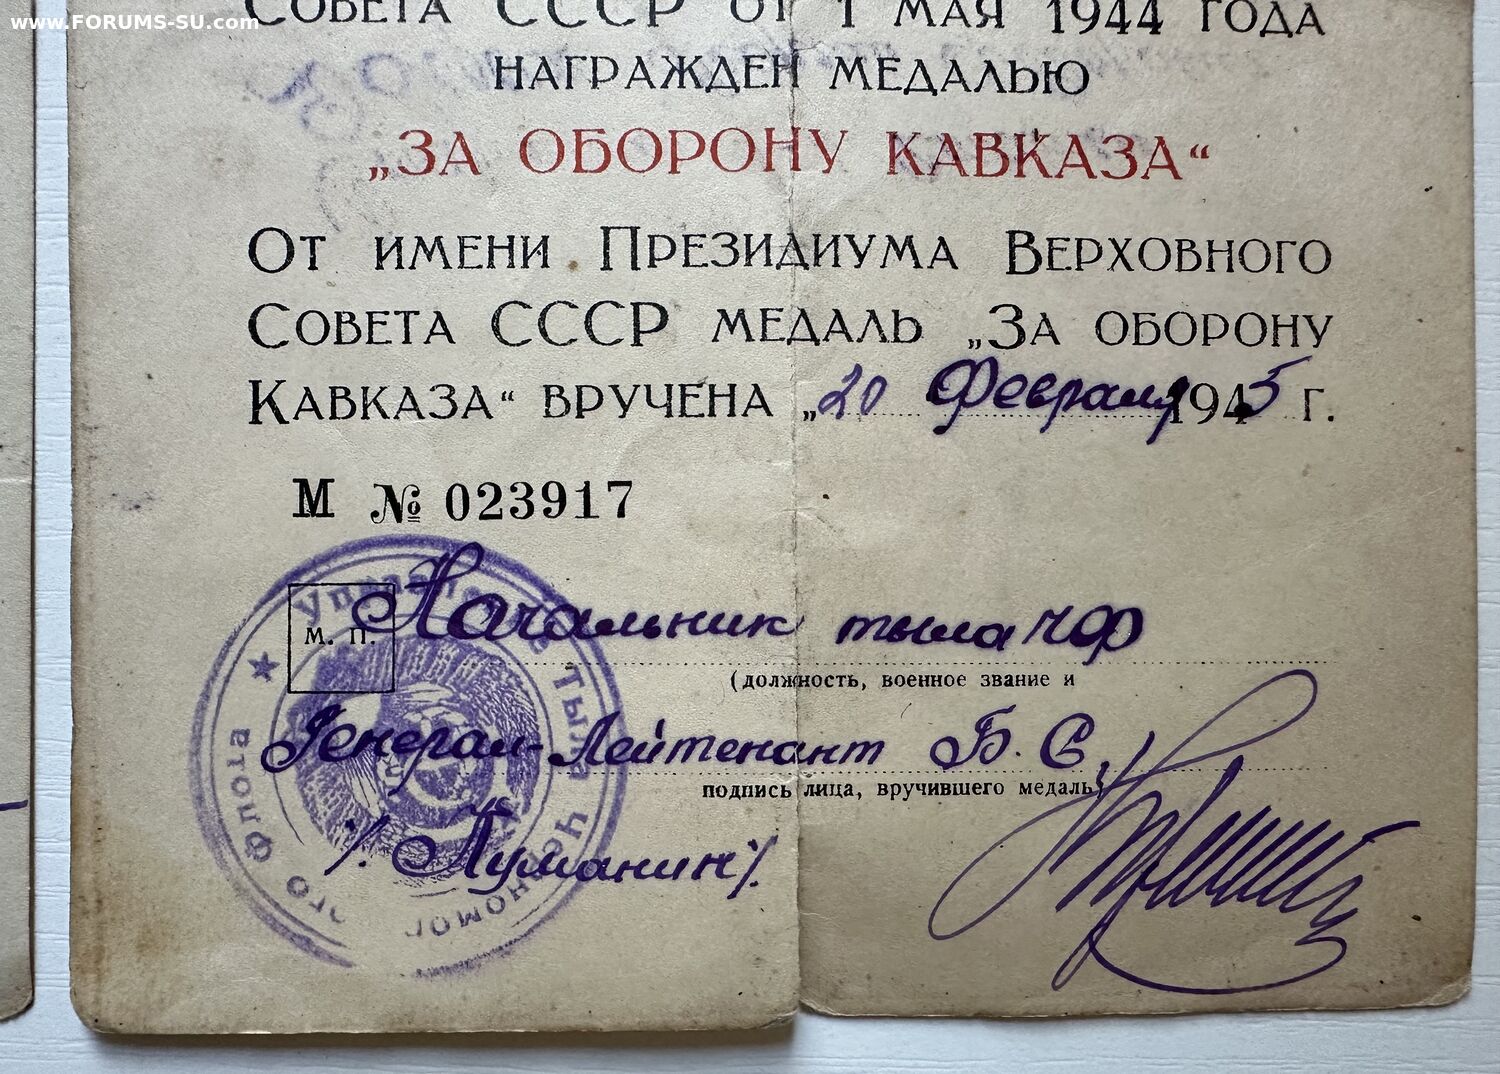 www.FORUMS-SU.com
Совета СССР от 1 мая 1944 года
награжден медалью
„ЗА ОБОРОНУ КАВКАЗА“
От имени Президиума Верховного
Совета СССР медаль „За оборону
Кавказа“ вручена „20 Февраля 1945 г.
М № 023917
Управление тыла Черноморского Флота
М. П.
Начальник тыла ЧФ
(должность, военное звание и
Генерал-Лейтенант Б. С.
подпись лица, вручившего медаль)